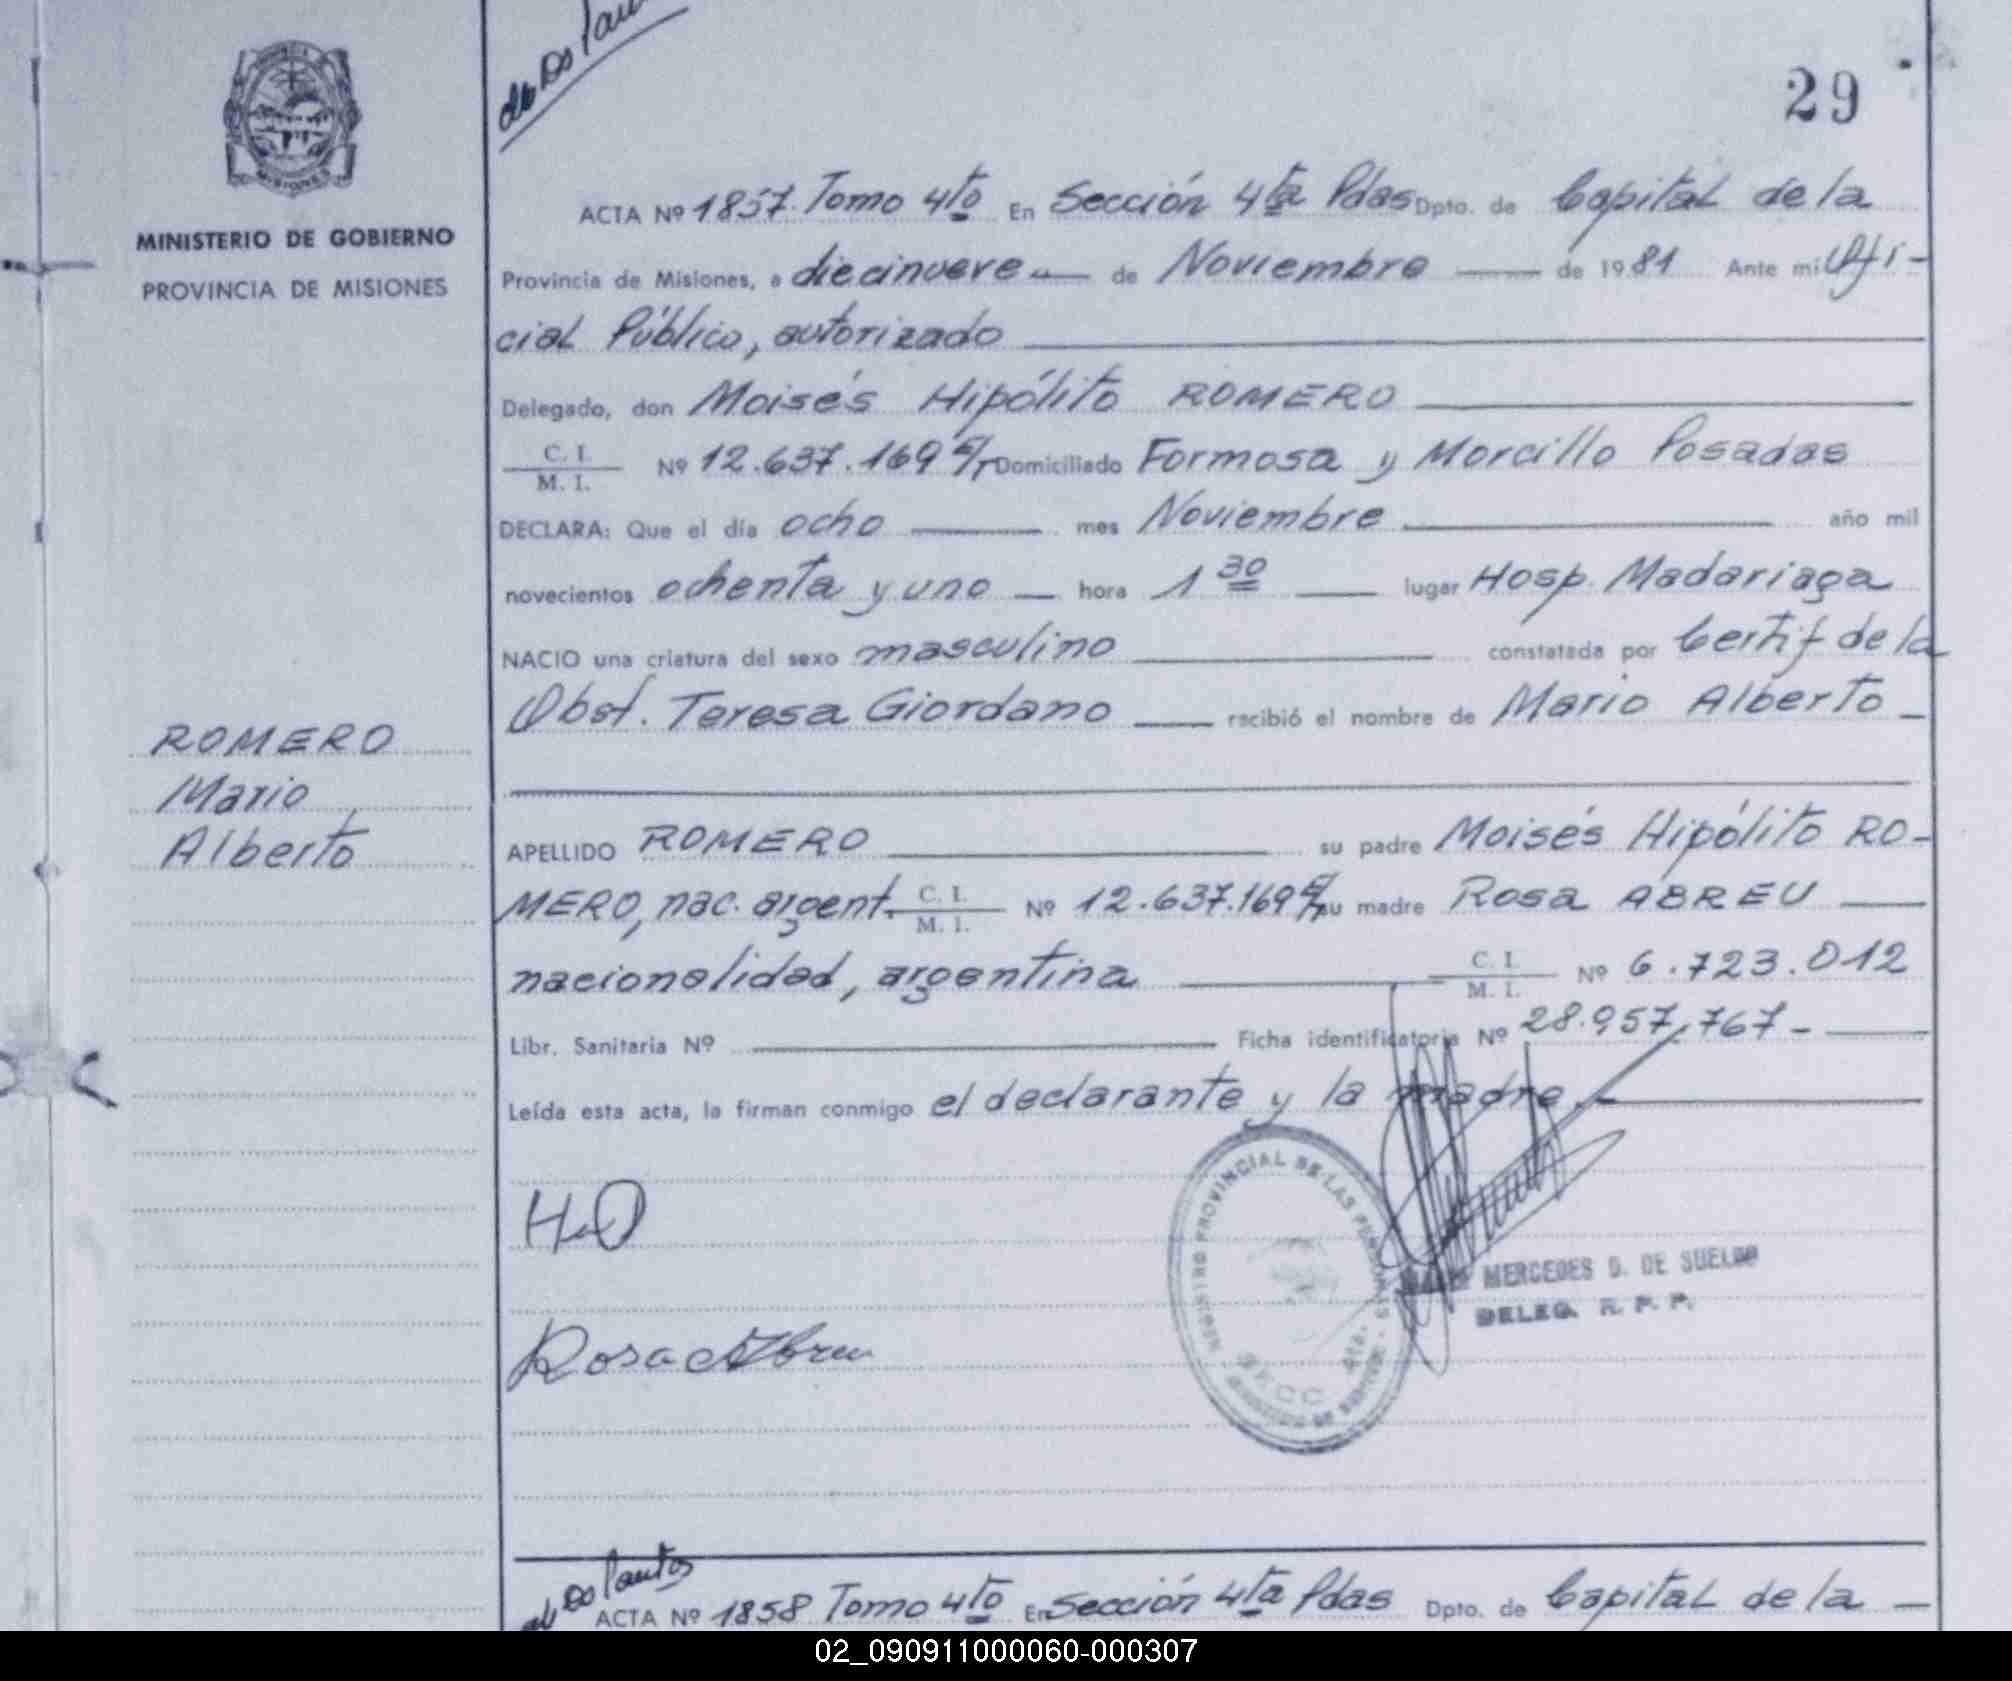 de Do
29
MISIONES
MINISTERIO DE GOBIERNO
PROVINCIA DE MISIONES
ACTA Nº 1857. Tomo 4to En Sección 4ta Pdas Dpto. de Capital de la
Provincia de Misiones, a diecinueve de Noviembre de 1981 Ante mi Ofi-
cial Público, autorizado
Delegado, don Moisés Hipólito ROMERO
C. I.
M. I. Nº 12.637.169 Domiciliado Formosa y Morcillo Posadas
DECLARA: Que el día ocho mes Noviembre año mil
novecientos ochenta y uno hora 1 30 lugar Hosp. Madariaga
NACIO una criatura del sexo masculino constatada por Certif de la
Obst. Teresa Giordano recibió el nombre de Mario Alberto
ROMERO
Mario
Alberto
APELLIDO ROMERO su padre Moisés Hipólito RO-
MERO, nac. argent. C. I. M. I. Nº 12.637.169 su madre Rosa ABREU
nacionalidad, argentina C. I. M. I. Nº 6.723.012
Libr. Sanitaria Nº Ficha identificatoria Nº 28.957.767-
Leída esta acta, la firman conmigo el declarante y la madre.-
REGISTRO PROVINCIAL DE LAS PERSONAS
SECC 4ta.
MERCEDES D. DE SUELDO
DELEG. R. P. P.
Rosa Abreu
de Do Santos
ACTA Nº 1858 Tomo 4to En Sección 4ta Pdas Dpto. de Capital de la
02_090911000060-000307